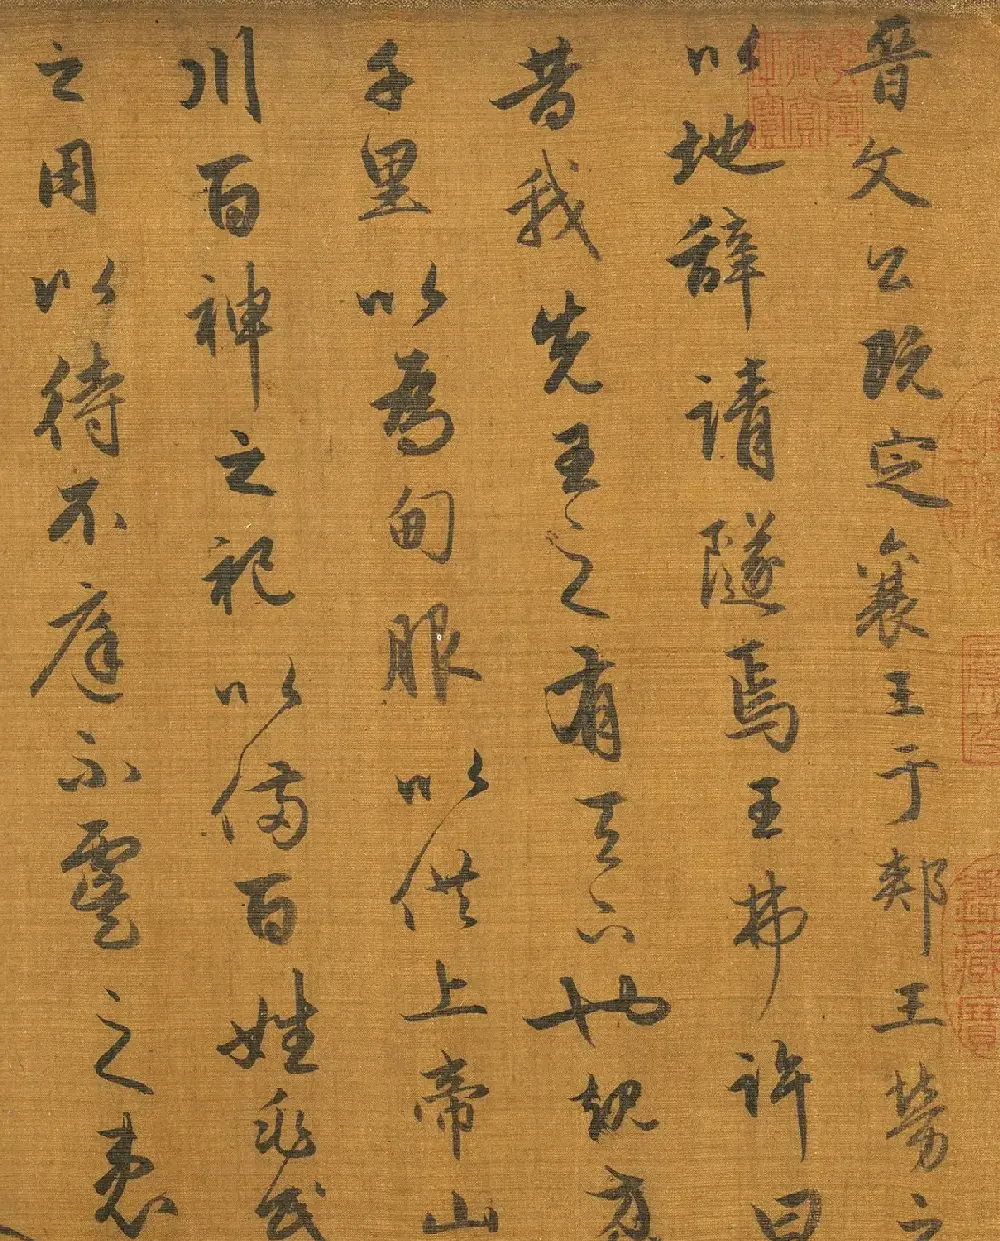 晋文公既定襄王于郏王劳之
以地辞请隧焉王弗许曰
昔我先王之有天下也规方
千里以为甸服以供上帝山
川百神之祀以备百姓兆民
之用以待不庭不虞之患